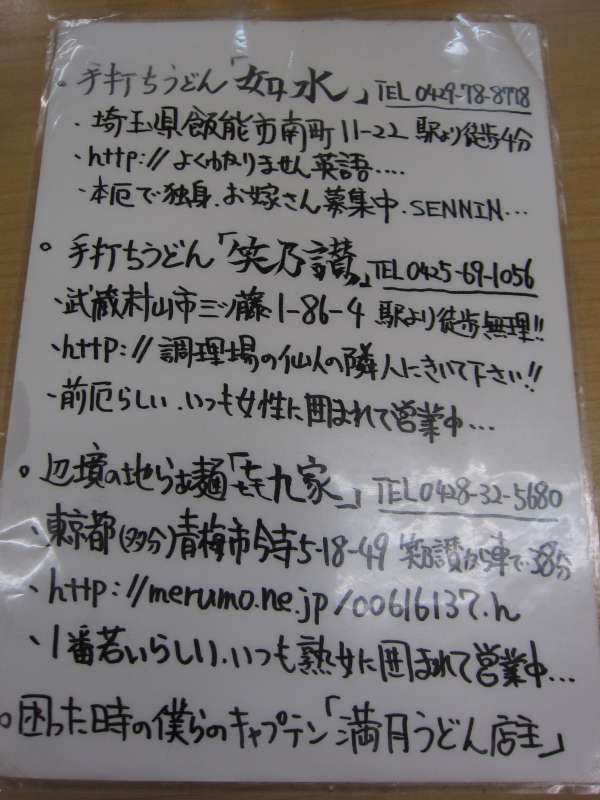 ・手打ちうどん「如水」TEL 0429-78-8778
・埼玉県飯能市南町11-22 駅より徒歩4分
・http://よくわかりません英語....
・本厄で独身.お嫁さん募集中.SENNIN...
○手打ちうどん「笑乃讃」TEL 0425-69-1056
・武蔵村山市三ツ藤1-86-4 駅より徒歩無理!!
・http://調理場の仙人の隣人にきいて下さい!!
・前厄らしい.いつも女性に囲まれて営業中...
○辺境の地らぁ麺「㐂九家」TEL 0428-32-5680
・東京都(多分)青梅市今寺5-18-49 笑乃讃から車で38分
・http://merumo.ne.jp/00616137.h
・1番若いらしい.いつも熟女に囲まれて営業中...
○困った時の僕らのキャプテン「満月うどん店主」